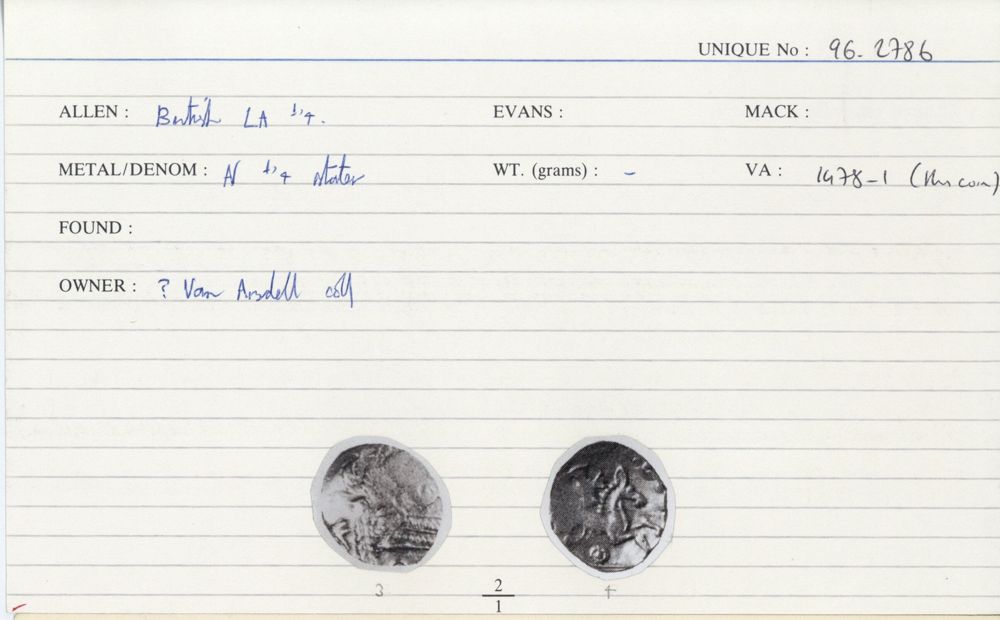 UNIQUE No : 96. 2786
ALLEN : British LA 1/4. EVANS : MACK :
METAL/DENOM : AV 1/4 stater WT. (grams) : – VA : 1478-1 (this coin)
FOUND :
OWNER : ? Van Arsdell coll
3 2/1 4